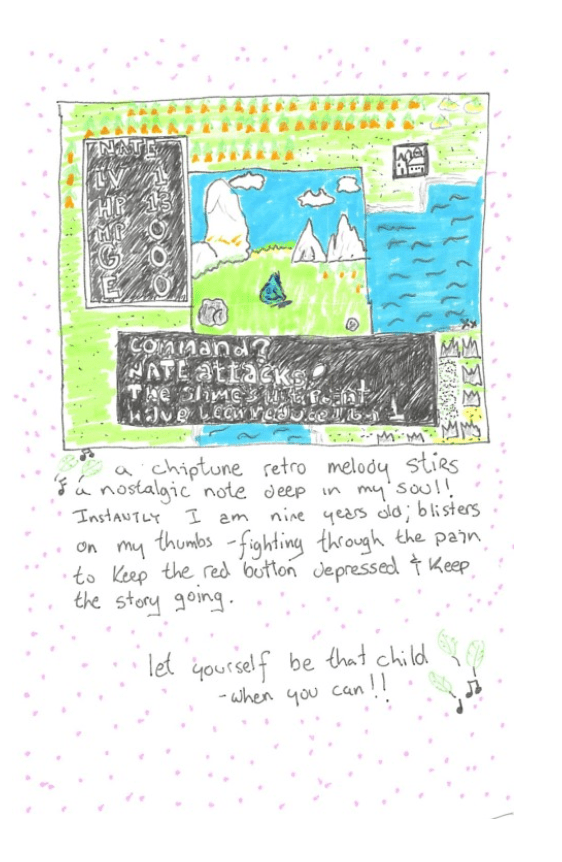 NATE
LV 1
HP 13
MP 0
G 0
E 0
Command?
NATE attacks!
The slime's hit point
have been reduced by 1
a chiptune retro melody stirs
a nostalgic note deep in my soul!
Instantly I am nine years old; blisters
on my thumbs - fighting through the pain
to keep the red button depressed & keep
the story going.
let yourself be that child
-when you can!!